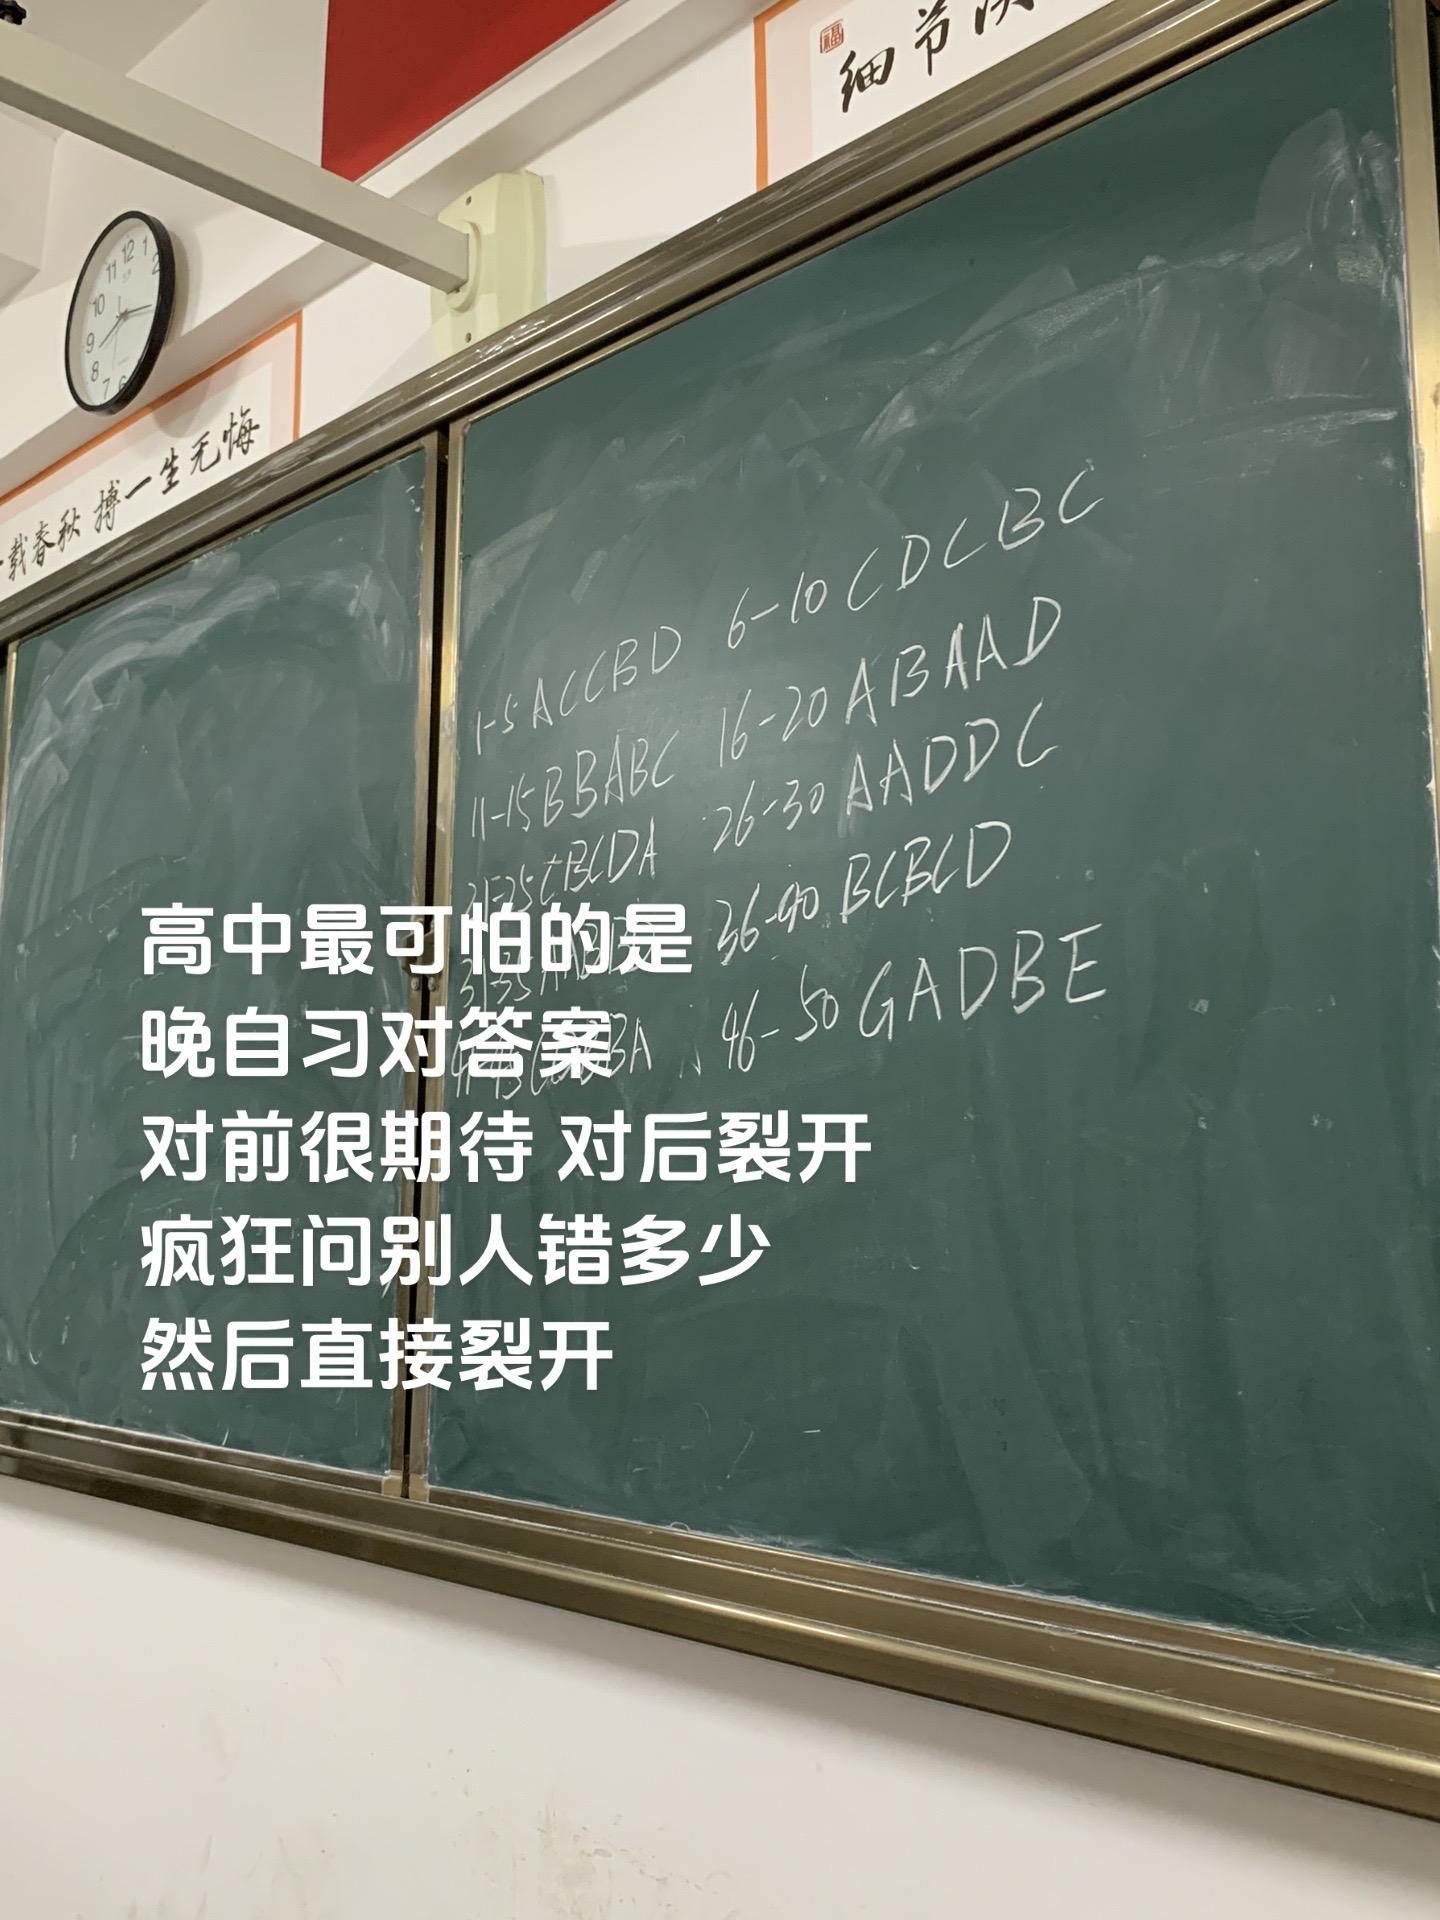 福
细节决
12 1 2 6 7 8 9 10 11
载春秋 搏一生无悔
1-5 ACCBD 6-10 CDCBC
11-15 BBABC 16-20 ABAAD
21-25 CBCDA 26-30 AADDC
31-35 36-40 BCBCD
41-45 BA 46-50 GADBE
高中最可怕的是
晚自习对答案
对前很期待 对后裂开
疯狂问别人错多少
然后直接裂开